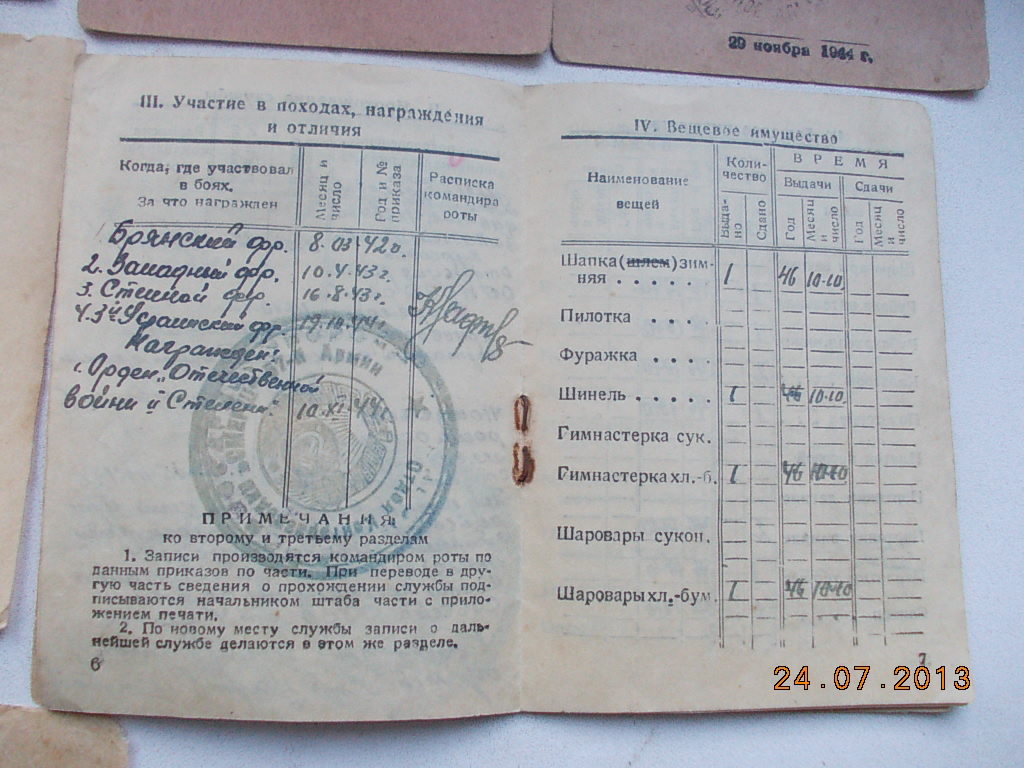 29 ноября 1944 г.
III. Участие в походах, награждения
и отличия
Когда, где участвовал
в боях.
За что награжден
Месяц и
число
Год и №
приказа
Расписка
командира
роты
Брянский фр. 8.03.42г.
2. Западный фр. 10.4.43г.
3. Степной фр. 16.8.43г.
4. 3й Украинский фр. 19.10.44г.
Награжден:
1. Орден „Отечественной
войны II Степени" 10.XI.44г.
ПРИМЕЧАНИЯ
ко второму и третьему разделам
1. Записи производятся командиром роты по
данным приказов по части. При переводе в дру-
гую часть сведения о прохождении службы под-
писываются начальником штаба части с прило-
жением печати.
2. По новому месту службы записи о даль-
нейшей службе делаются в этом же разделе.
6
IV. Вещевое имущество
Наименование
вещей
Коли-
чество
ВРЕМЯ
Выдачи
Сдачи
Выда-
но
Сдано
Год
Месяц
и
число
Год
Месяц
и
число
Шапка (шлем) зим-
няя . . . . . 1 46 10.10
Пилотка . . . .
Фуражка . . . .
Шинель . . . . . 1 46 10.10
Гимнастерка сук.
Гимнастерка хл.-б. 1 46 10.10
Шаровары сукон.
Шаровары хл.-бум. 1 46 10.10
7
24.07.2013